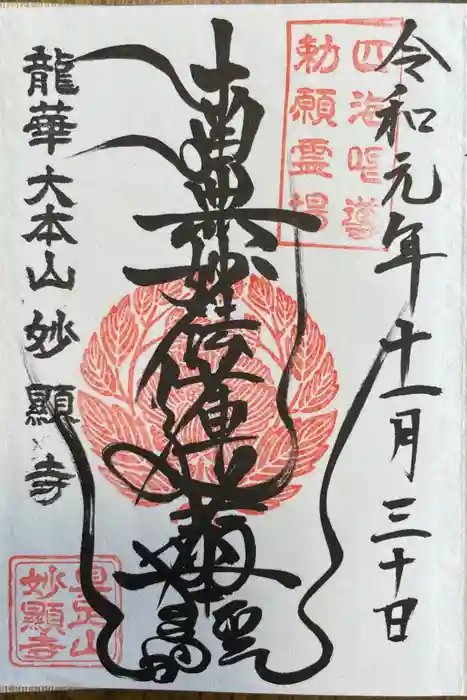 令和元年十一月三十日
四海唱導
勅願霊場
南無妙法蓮華経
龍華大本山妙顯寺
具足山
妙顯寺